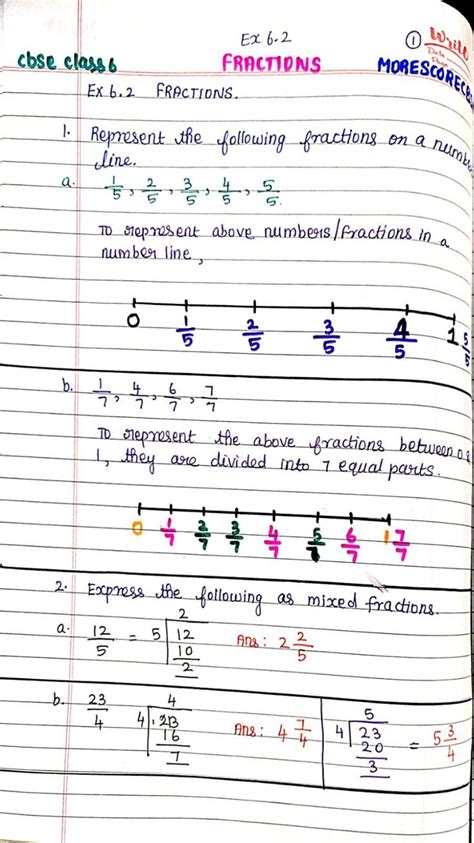 Ex 6.2
① Write
Date
Page
cbse class 6 FRACTIONS MORESCORECB
Ex 6.2 FRACTIONS.
1. Represent the following fractions on a numbe
line.
a. 1/5, 2/5, 3/5, 4/5, 5/5.
To represent above numbers/fractions in a
number line,
0 1/5 2/5 3/5 4/5 1 5/5
b. 1/7, 4/7, 6/7, 7/7
To represent the above fractions between 0 &
1, they are divided into 7 equal parts.
0 1/7 2/7 3/7 4/7 5/7 6/7 1 7/7
2. Express the following as mixed fractions.
a. 12/5 = 5 12 2 Ans: 2 2/5
10
2
b. 23/4 4 23 4 Ans: 4 7/4 4 23 5 = 5 3/4
16 20
7 3